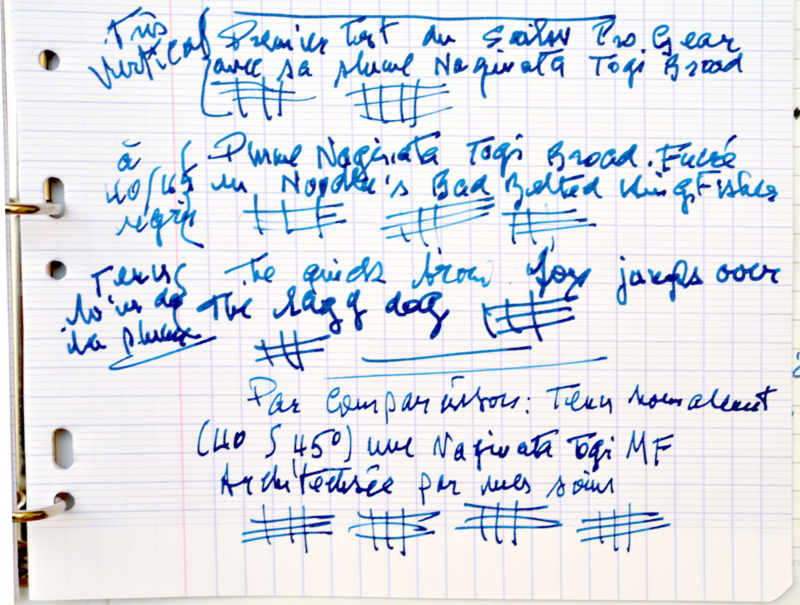 Très vertical
Premier Test du Sailor Pro Gear
avec sa plume Naginata Togi Broad
à 40/45 degrés
Plume Naginata Togi Broad. Encre
in Noodler's Bad Belted Kingfisher
Tenu loin de la plume
The quick brown fox jumps over
the lazy dog
Par comparaison: Tenu normalement
(40 à 45°) une Naginata Togi MF
Architecturée par mes soins